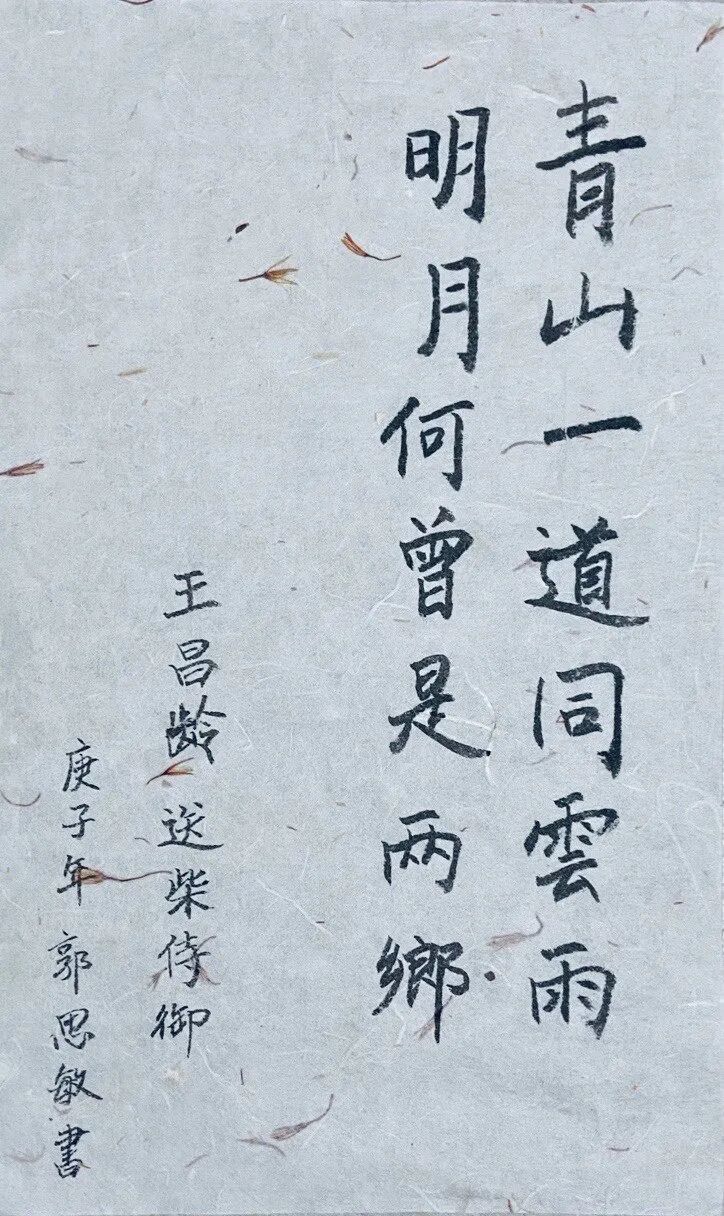 青山一道同雲雨
明月何曾是两鄉
王昌龄 送柴侍御
庚子年 郭思敏書